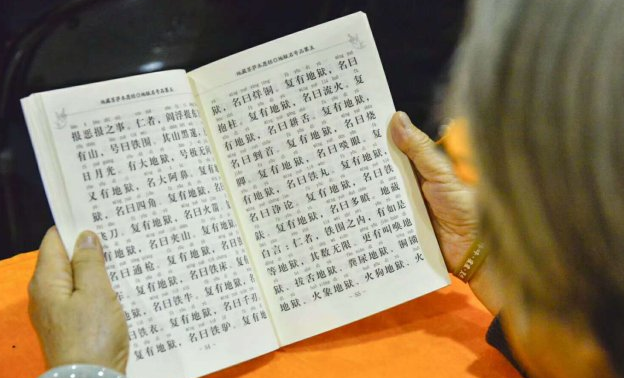 地藏菩萨本愿经◎地狱名号品第五
报恶报之事。仁者，阎浮提
有山，号曰铁围，其山黑邃，
日月光。有大地狱，号极无
又有地狱，名大阿鼻。复有
狱，名曰四角。复有
飞刀。复有地狱，名曰火箭
地狱，名曰夹山。复有
名曰通枪。复有地狱
地狱，名曰铁床。复
名曰铁牛。复有
曰铁衣。复有地狱，名曰千刃
复有地狱，名曰铁驴。复有
地藏菩萨本愿经◎地狱名号品第五
狱，名曰烊铜。复有地狱，名曰
抱柱。复有地狱，名曰流火。复
有地狱，名曰耕舌。复有地狱，
名曰剉首。复有地狱，名曰烧
脚。复有地狱，名曰啖眼。复
有地狱，名曰铁丸。复有地狱，
名曰诤论。复有地狱，名曰铁
复有地狱，名曰多瞋。地藏
白言：仁者，铁围之内，有如是
等地狱，其数无限。更有叫唤地
狱，拔舌地狱，粪尿地狱，铜锁
地狱，火象地狱，火狗地狱，火